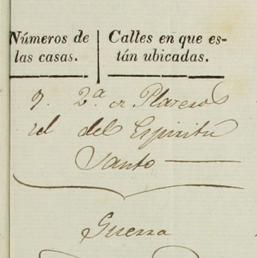 Números de las casas.
Calles en que es-
tán ubicadas.
9. 2ª de Plateros
id del Espiritu
Santo
Guerra